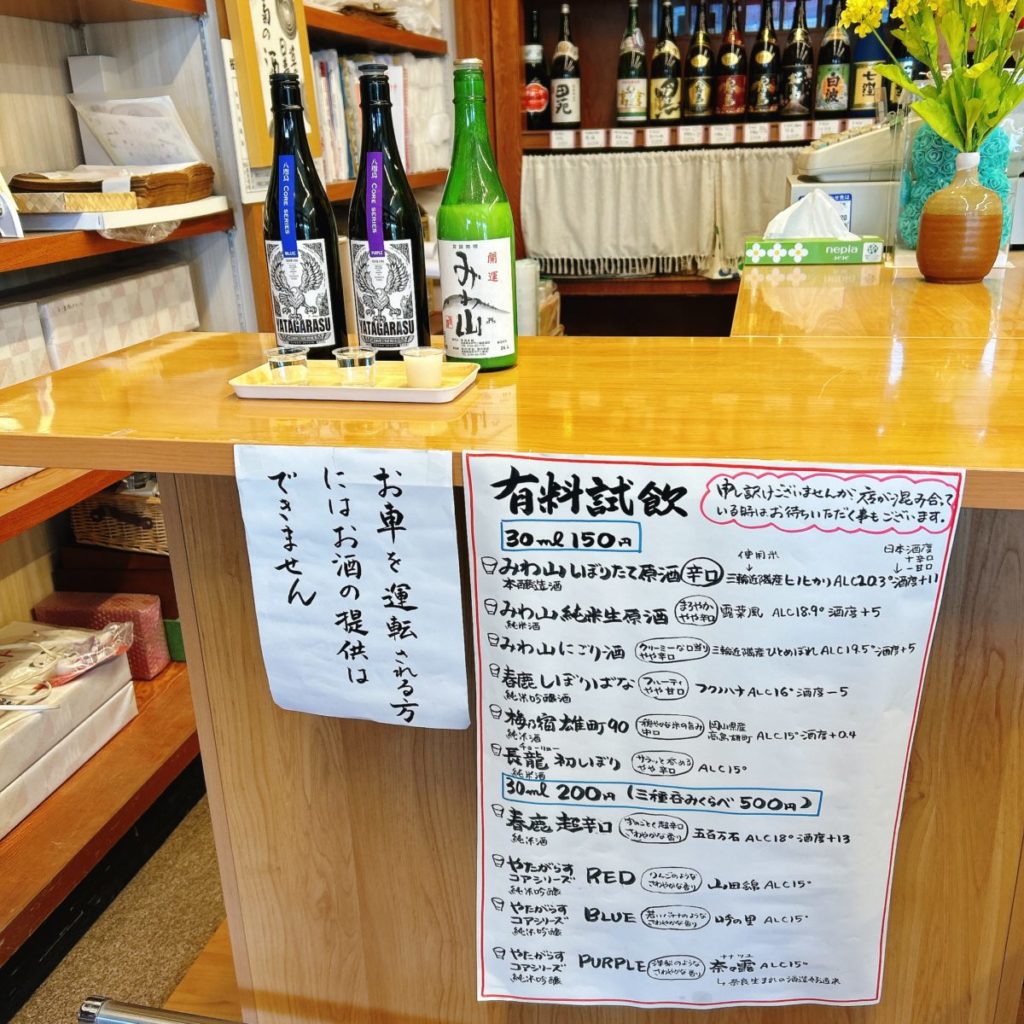 の酒
八咫烏 CORE SERIES
BLUE
YATAGARASU
八咫烏 CORE SERIES
PURPLE
YATAGARASU
開運
みむ山
白波
七窪
nepia
お車を運転される方
にはお酒の提供は
できません
有料試飲
申し訳ございませんが、店が混み合って
いる時はお待ちいただく事もございます。
30ml 150円
使用米
日本酒度
+辛口
-甘口
みわ山 しぼりたて原酒 辛口 三輪近隣産ヒノヒカリ ALC20.3° 酒度+11
本醸造酒
みわ山 純米生原酒 まろやか やや辛口 露葉風 ALC18.9° 酒度+5
純米酒
みわ山 にごり酒 クリーミーな口当り やや辛口 三輪近隣産ひとめぼれ ALC19.5° 酒度+5
春鹿 しぼりばな フルーティ やや甘口 フクノハナ ALC16° 酒度-5
純米吟醸酒
梅乃宿 雄町90 穏やかな米の旨み 中口 岡山県産 高島雄町 ALC15° 酒度+0.4
純米酒
チョーリョー
長龍 初しぼり サラッと飲める やや辛口 ALC15°
純米酒
30ml 200円 (三種呑みくらべ 500円)
春鹿 超辛口 さわやかな香り 五百万石 ALC18° 酒度+13
純米酒
やたがらす
コアシリーズ RED りんごのような さわやかな香り 山田錦 ALC15°
純米吟醸
やたがらす
コアシリーズ BLUE 若いバナナのような さわやかな香り 吟の里 ALC15°
純米吟醸
やたがらす
コアシリーズ PURPLE 洋梨のような さわやかな香り 奈々露 ALC15°
ナナツユ
純米吟醸
↳奈良生まれの酒造好適米